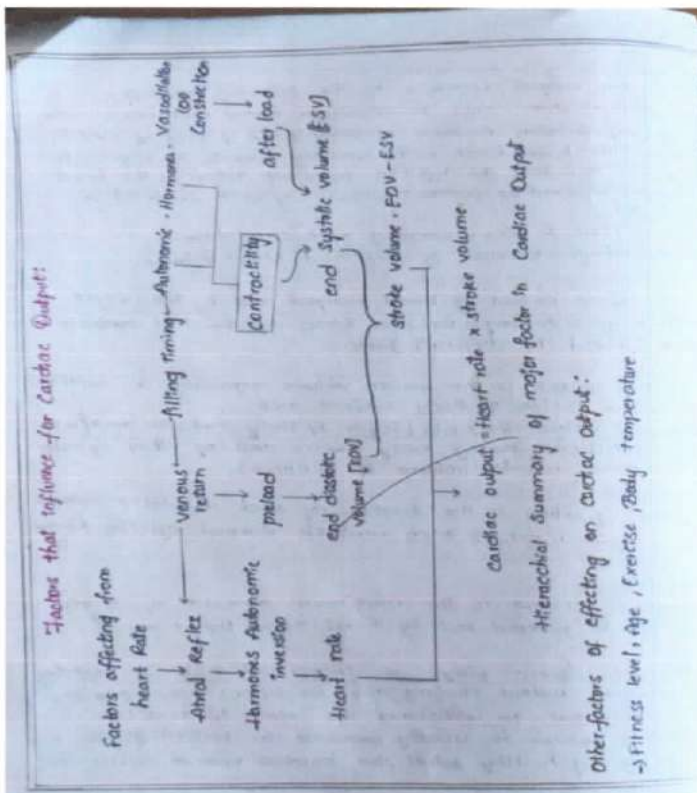 Factors that influence for Cardiac Output:
Factors affecting from
heart Rate
Atrial Reflex
Harmones Autonomic
inversion
Heart rate
venous
return
preload
end diastolic
volume [EDV]
filling timing
Autonomic
Hormones
Vasodilation
(or)
Constriction
contractility
after load
end systolic volume [ESV]
stroke volume = EDV-ESV
Cardiac output = Heart rate x stroke volume
Hieracchial Summary of major factor in Cardiac Output
Other-factors of effecting on cardiac output:
→ Fitness level, Age, Exercise, Body temperature